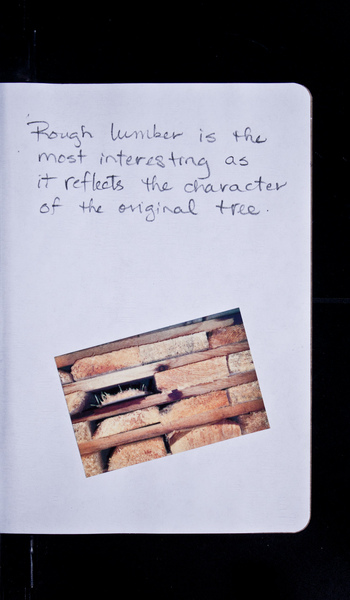 Rough lumber is the
most interesting as
it reflects the character
of the original tree.